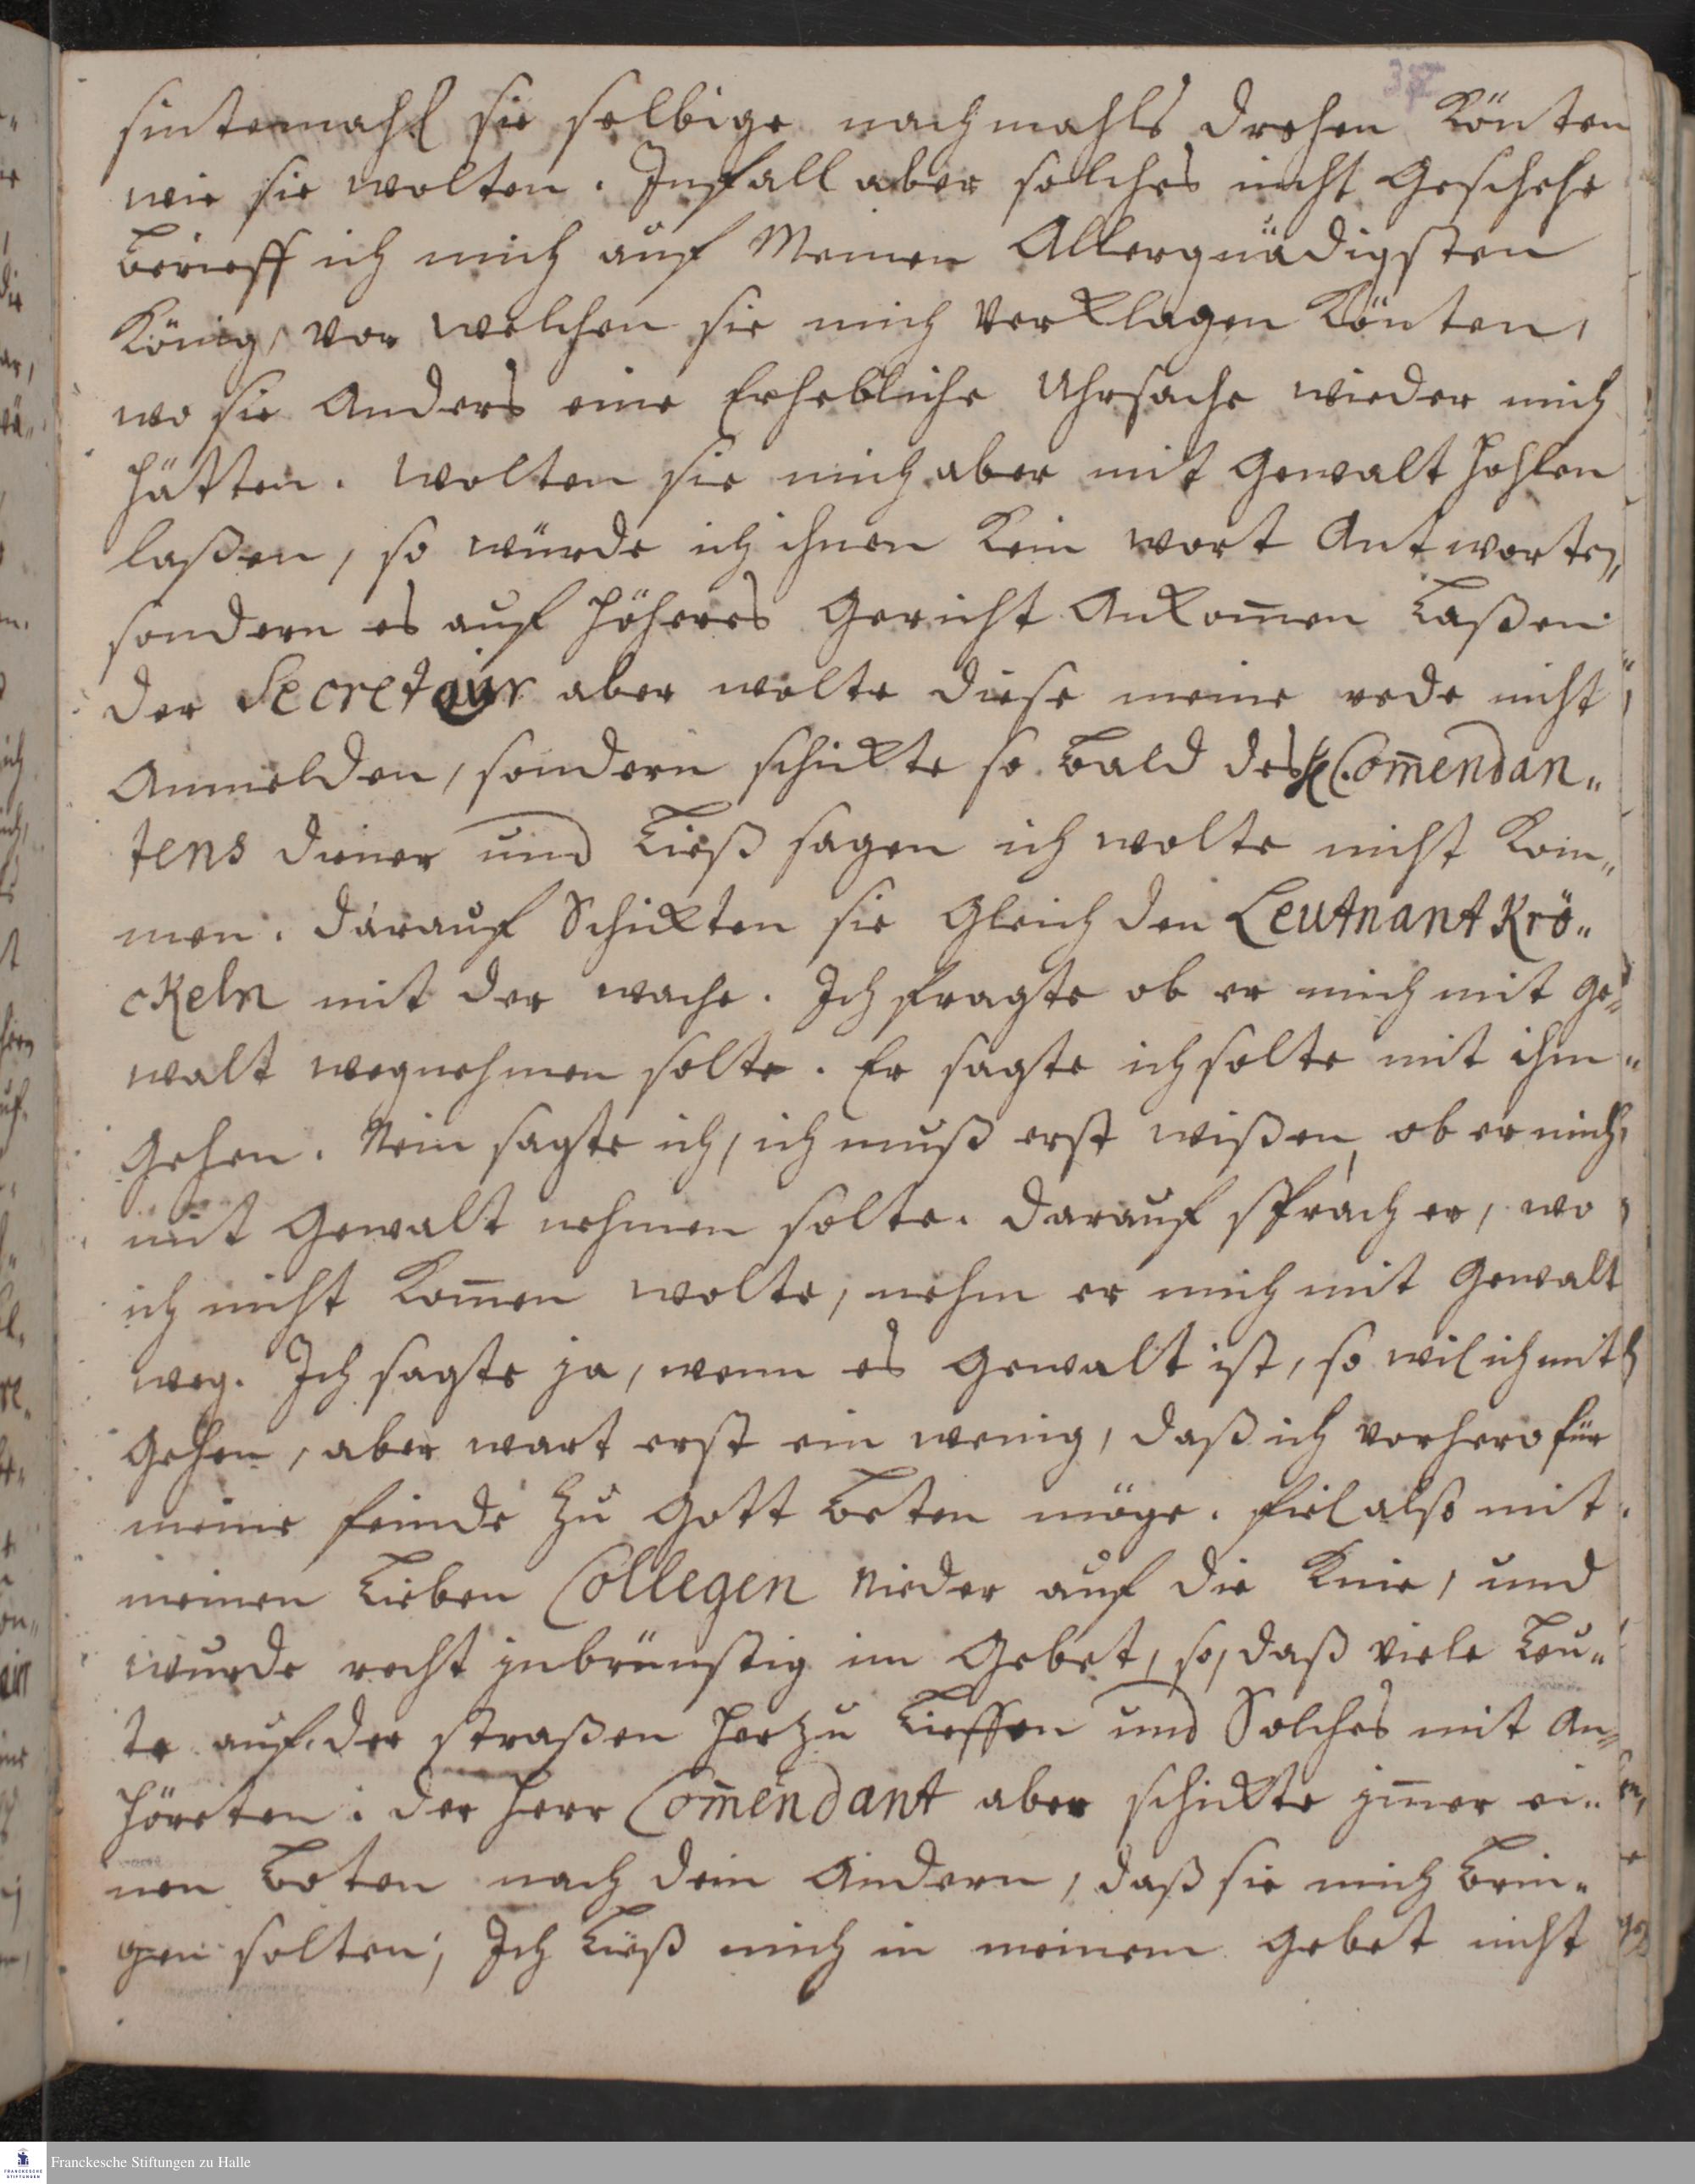 sintemahl sie selbige nachmahls drehen Könten
wie sie wolten. Imfall aber solches nicht Geschehe
berieff ich mich auf Meinen Allergnädigsten
König, vor welchen sie mich Verklagen Könten,
wo sie Anders eine Erhebliche Uhrsache wieder mich
hätten. Wolten sie mich aber mit Gewalt hohlen
laßen, so würde ich ihnen Kein wort Antworten,
sondern es auf höheres Gericht Ankom̅en Laßen
der Secretair aber wolte diese meine rede nicht
Anmelden, sondern schickte so bald des H. Com̅endan„
tens diener und Ließ sagen ich wolte nicht Kom„
men. darauf Schickten sie Gleich den Leutnant Krö„
ckeln mit der wache. Ich fragte ob er mich mit Ge„
walt wegnehmen solte. Er sagte ich solte mit ihm
Gehen. Nein sagte ich, ich muß erst wißen, ob er mich
mit Gewalt nehmen solte. darauf sprach er, wo
ich nicht Kom̅en wolte, nehm er mich mit Gewalt
weg. Ich sagte ja, wenn es Gewalt ist, so wil ich mit
Gehen, aber wart erst ein wenig, daß ich vorhero für
meine feinde zu Gott beten möge. fiel alß mit
meinen Lieben Collegen Nieder auf die Knie, und
wurde recht inbrünstig im Gebet, so, daß viele Leu„
te auf der straßen herzu Lieffen und Solches mit An„
höreten. der Herr Com̅endant aber schickte im̅er ei„
nen boten nach dem Andern, daß sie mich brin„
gen solten; Ich Ließ mich in meinem Gebet nicht
Franckesche Stiftungen zu Halle